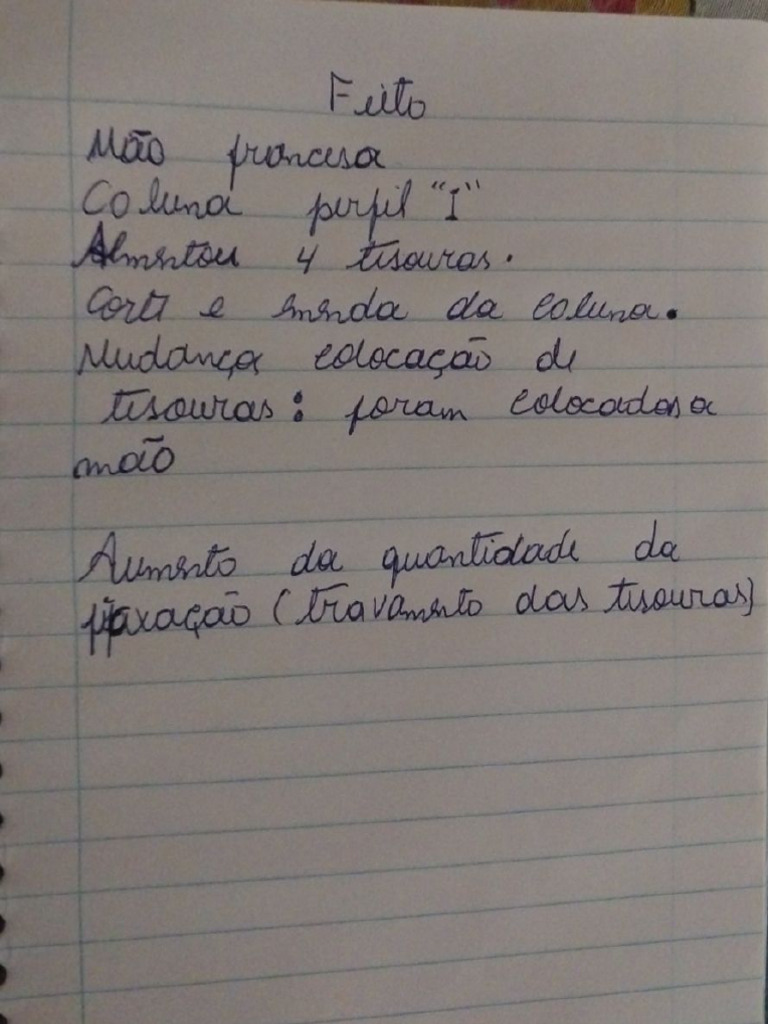 Feito
Mão francesa
Coluna perfil "I"
Almentou 4 tisouras.
Corte e emenda da coluna.
Mudança colocação de
tisouras: foram colocadas a
mão
Aumento da quantidade da
fixação (travamento das tisouras)